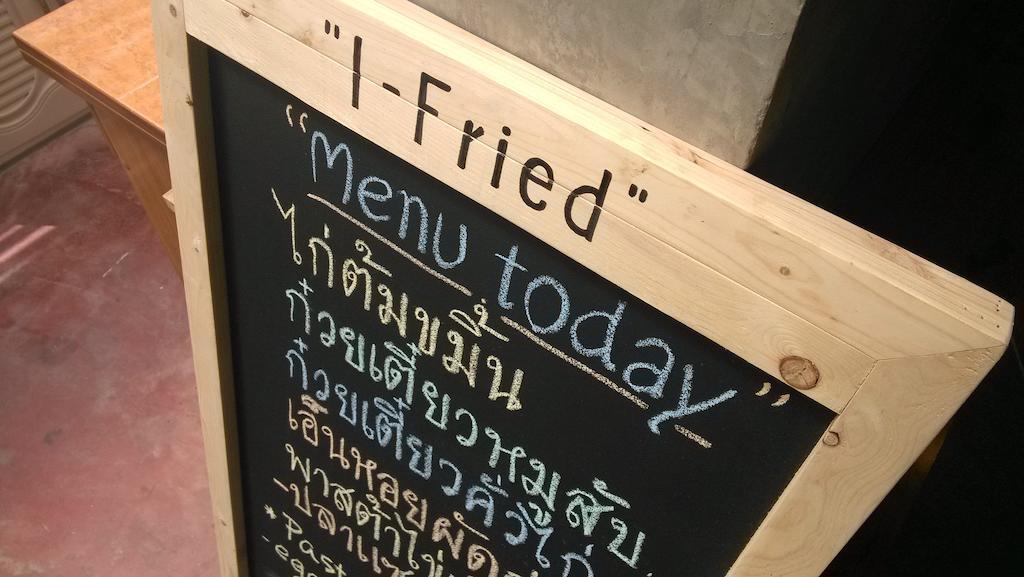 "I-Fried"
"Menu today"
ไก่ต้มขมิ้น
ก๋วยเตี๋ยวหมูสับ
ก๋วยเตี๋ยวคั่วไก่
เอ็นหอยผัด
พาสต้าไข่
-ปลาแซ
* Past